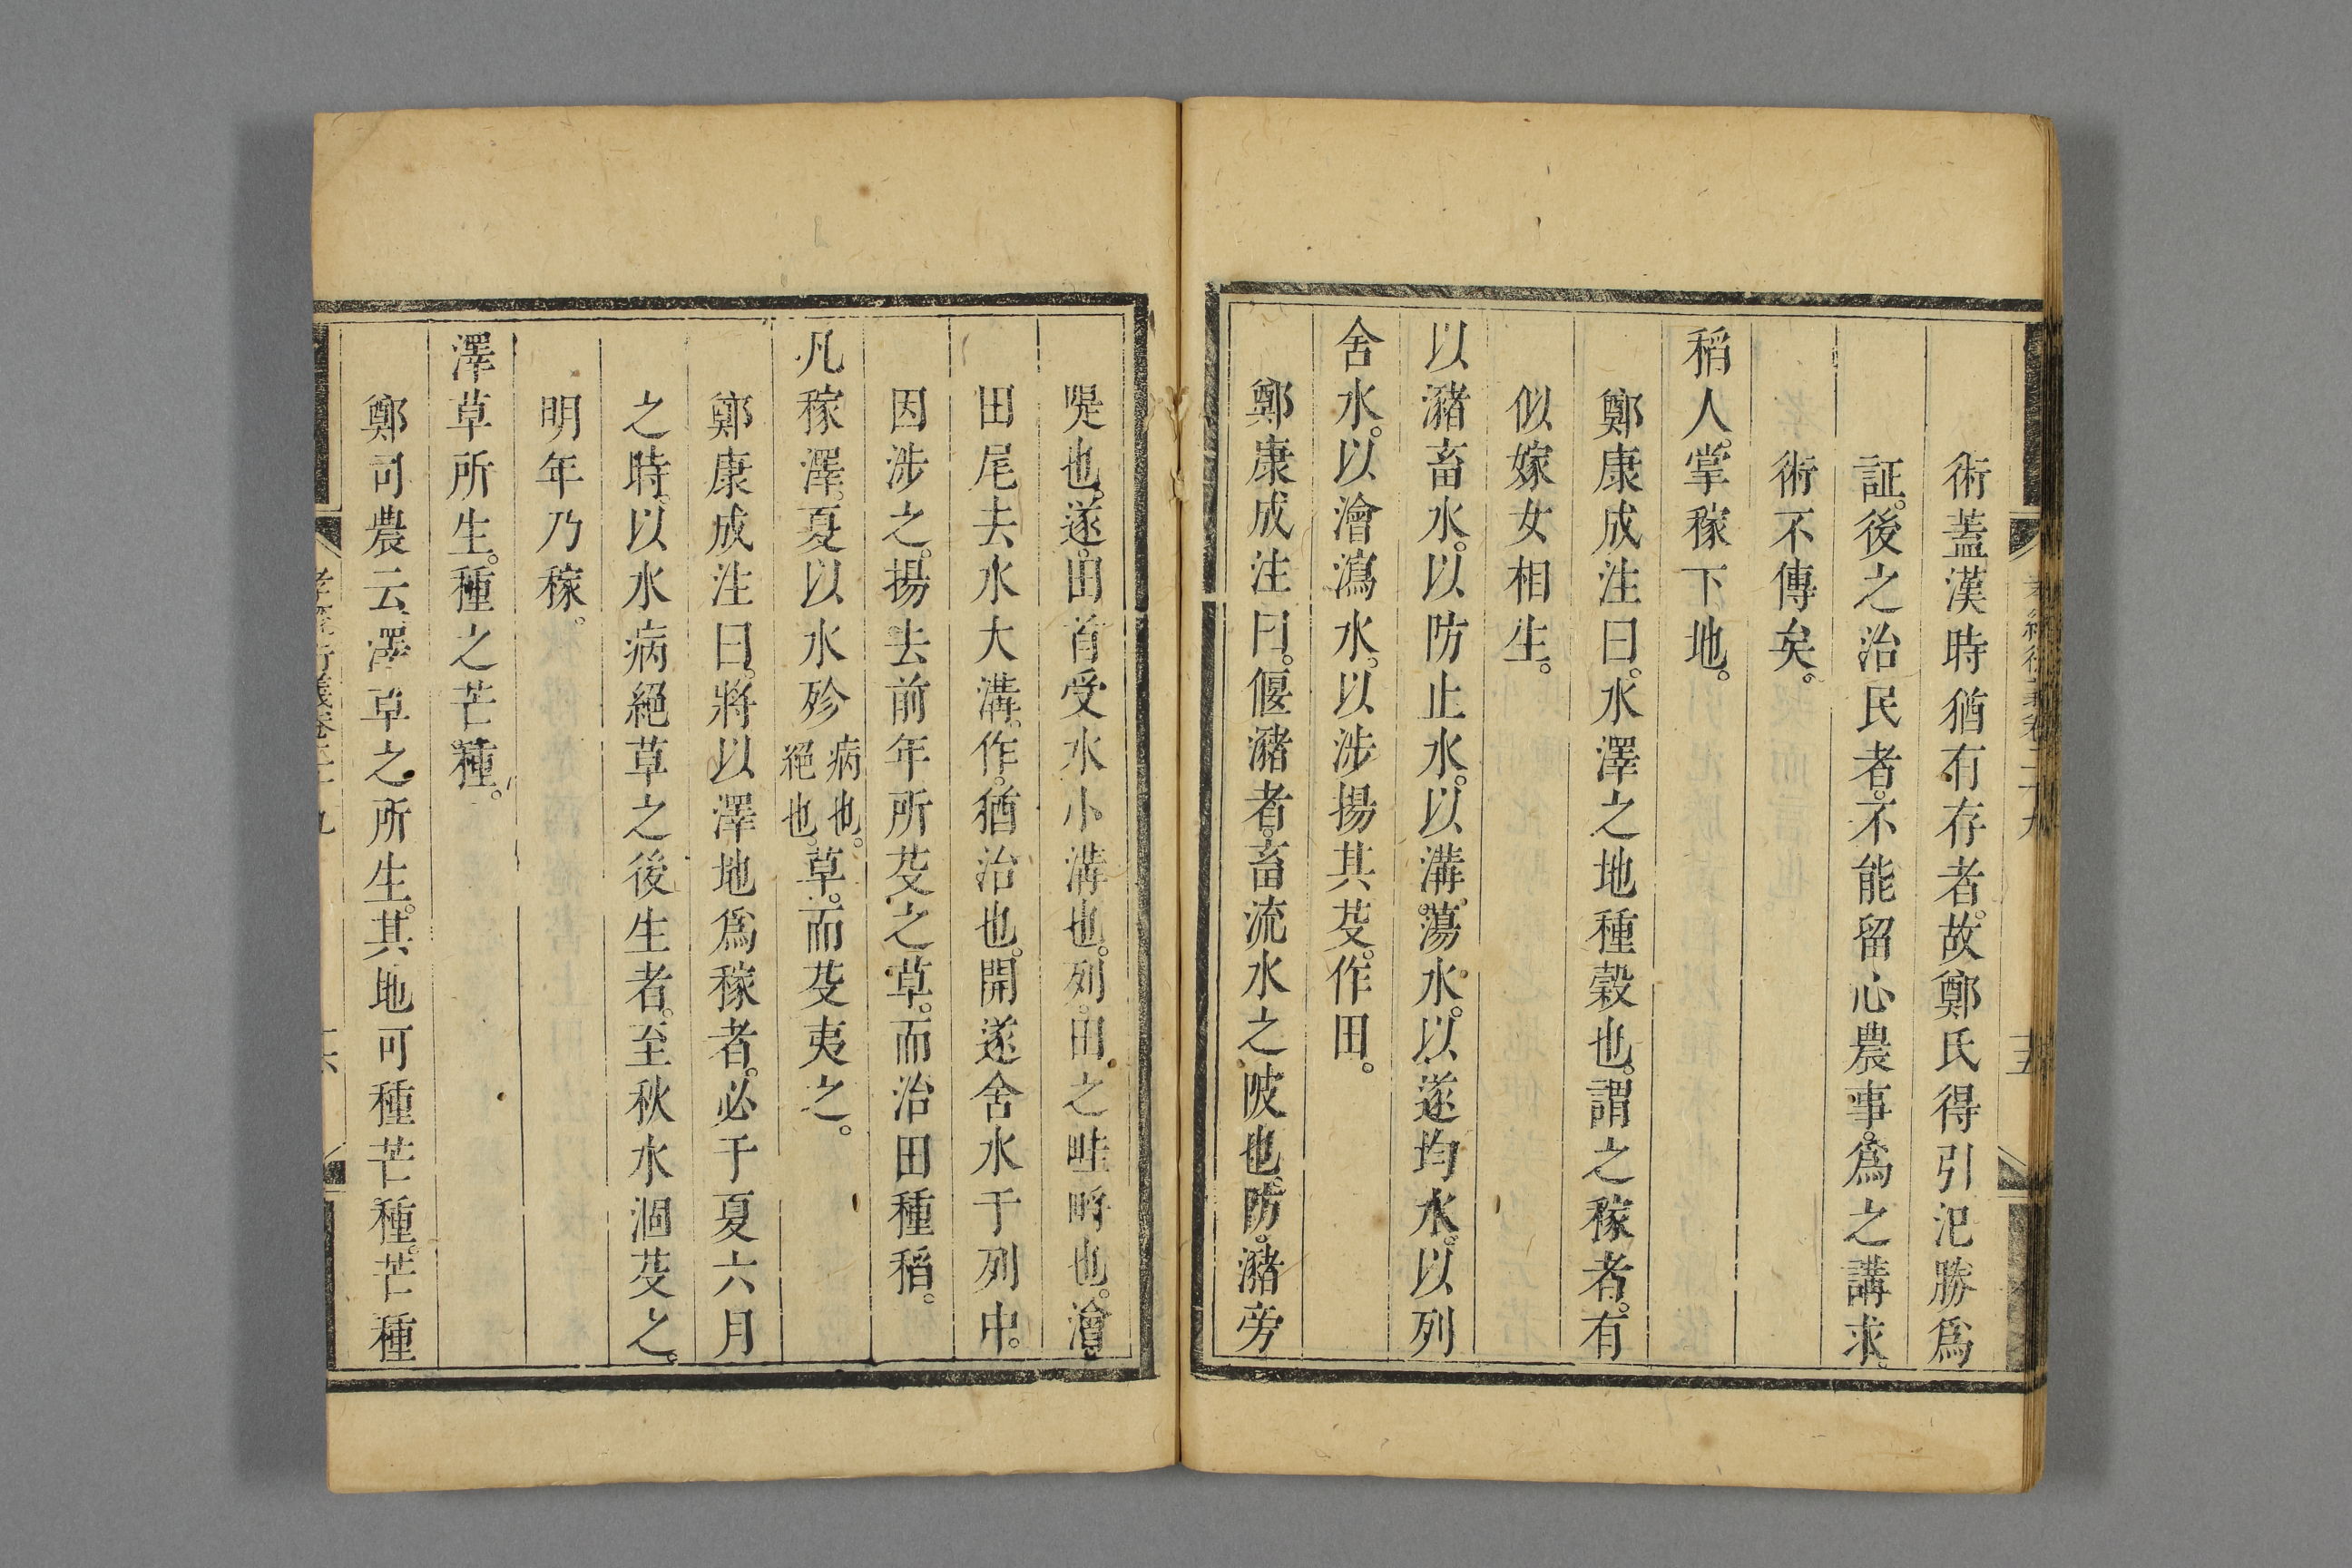 術蓋漢時猶有存者。故鄭氏得引汜勝爲
証。後之治民者。不能留心農事。爲之講求。
術不傳矣。
稻人。掌稼下地。
鄭康成注曰。水澤之地種穀也。謂之稼者。有
似嫁女相生。
以瀦畜水。以防止水。以溝。蕩水。以遂均水。以列
舍水。以澮瀉水。以涉揚其芟。作田。
鄭康成注曰。偃瀦者。畜流水之陂也。防。瀦旁
隄也。遂。田首受水小溝也。列。田之畦㽟也。澮
田尾去水大溝。作。猶治也。開遂舍水于列中。
因涉之。揚去前年所芟之草。而治田種稻。
凡稼澤。夏以水殄病也。絕也。草。而芟夷之。
鄭康成注曰。將以澤地爲稼者。必于夏六月
之時。以水病絕草之後生者。至秋水涸芟之。
明年乃稼。
澤草所生。種之芒種。
鄭司農云。澤草之所生。其地可種芒種。芒種